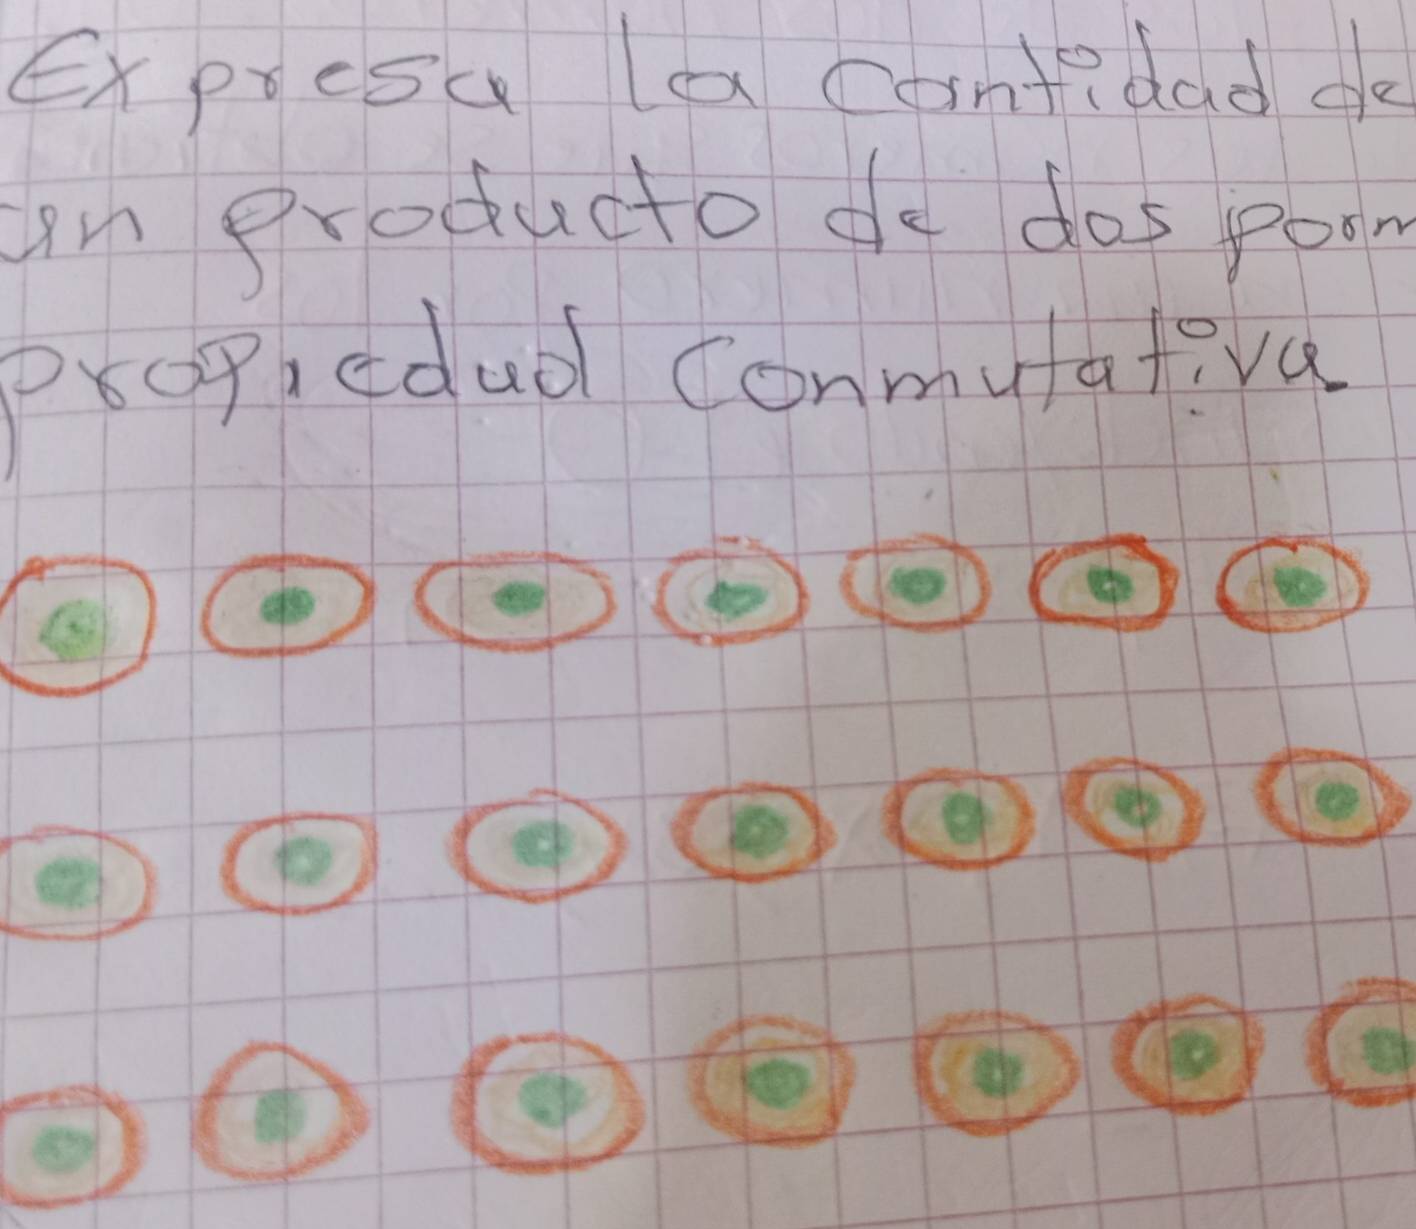 Expresa la cantidad de
un producto de dos form
propiedad conmutativa